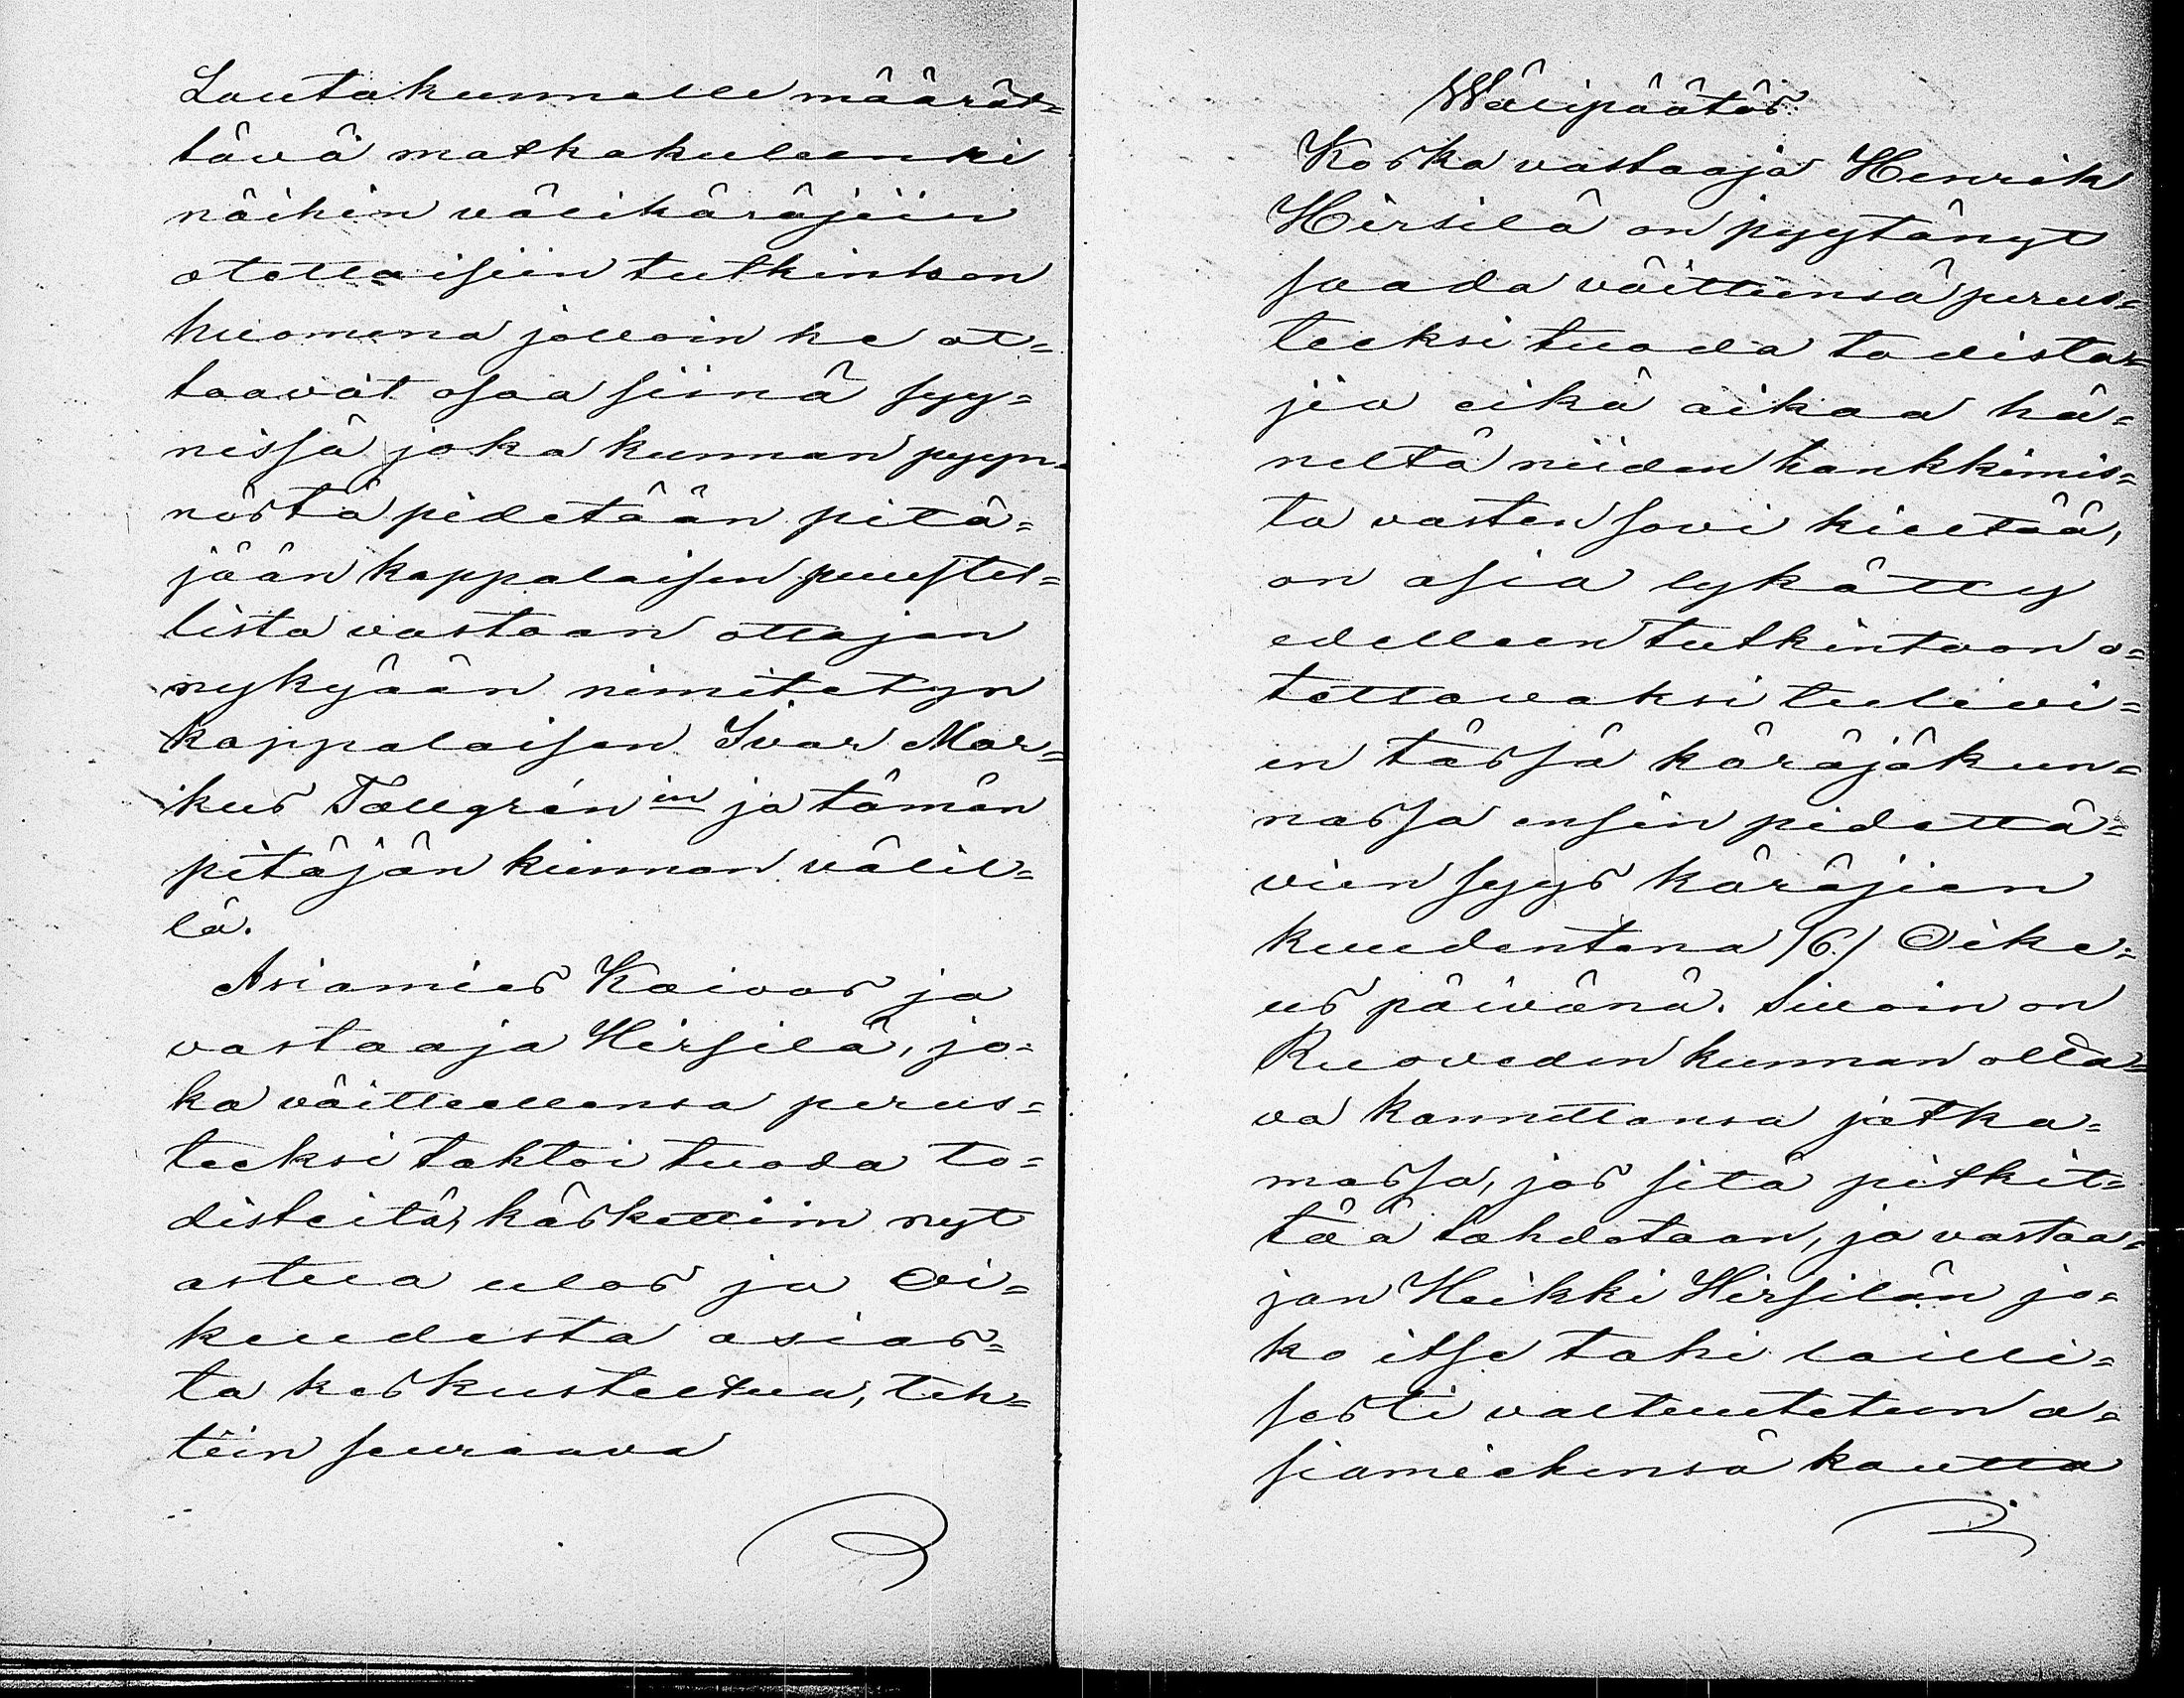 Lautakunnalle määrät=
tävä matkakulunki
näihin välikäräjiin
otettaisiin tutkintoon
huomena jolloin he ot=
taavat osaa siinä syy=
nissä joka kunnan pyyn=
nöstä pidetään pitä=
jään kappalaisen puustel=
lista vastaan ottajan
nykyään nimitetyn
kappalaisen Ivar Mar=
kus Tallgrén in ja tämän
pitäjän kunnan välil=
lä.
Asiamies Kaivos ja
vastaaja Hirsilä, jo=
ka väitteellensa perus=
teeksi tahtoi tuoda to=
disteita, käskettiin nyt
astua ulos ja Oi=
keudesta asias=
ta keskusteltua, teh=
tiin seuraava
Wälipäätös:
Koska vastaaja Henrik
Hirsilä on pyytänyt
saada väitteensä perus=
teeksi tuoda todista=
jia eikä aikaa hä=
neltä niiden hankkimis=
ta vasten sovi kieltää,
on asia lykätty
edelleen tutkintoon o=
tettavaksi tulevi=
en tässä käräjäkun=
nassa ensin pidettä=
vien syys käräjien
kuudentena /6/ Oike=
us päivänä. Silloin on
Ruoveden kunnan olla=
va kannettansa jatka=
massa, jos sitä pitkit=
tää tahdotaan, ja vastaa=
jan Heikki Hirsilän jo=
ko itse taki lailli=
sesti valtuutetun a=
siamiehensä kautta